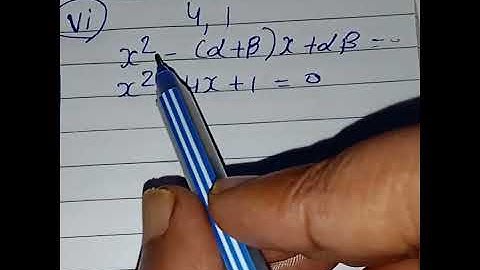 vi) 4, 1
x² - (α+β)x + αβ = 0
x² 4x + 1 = 0